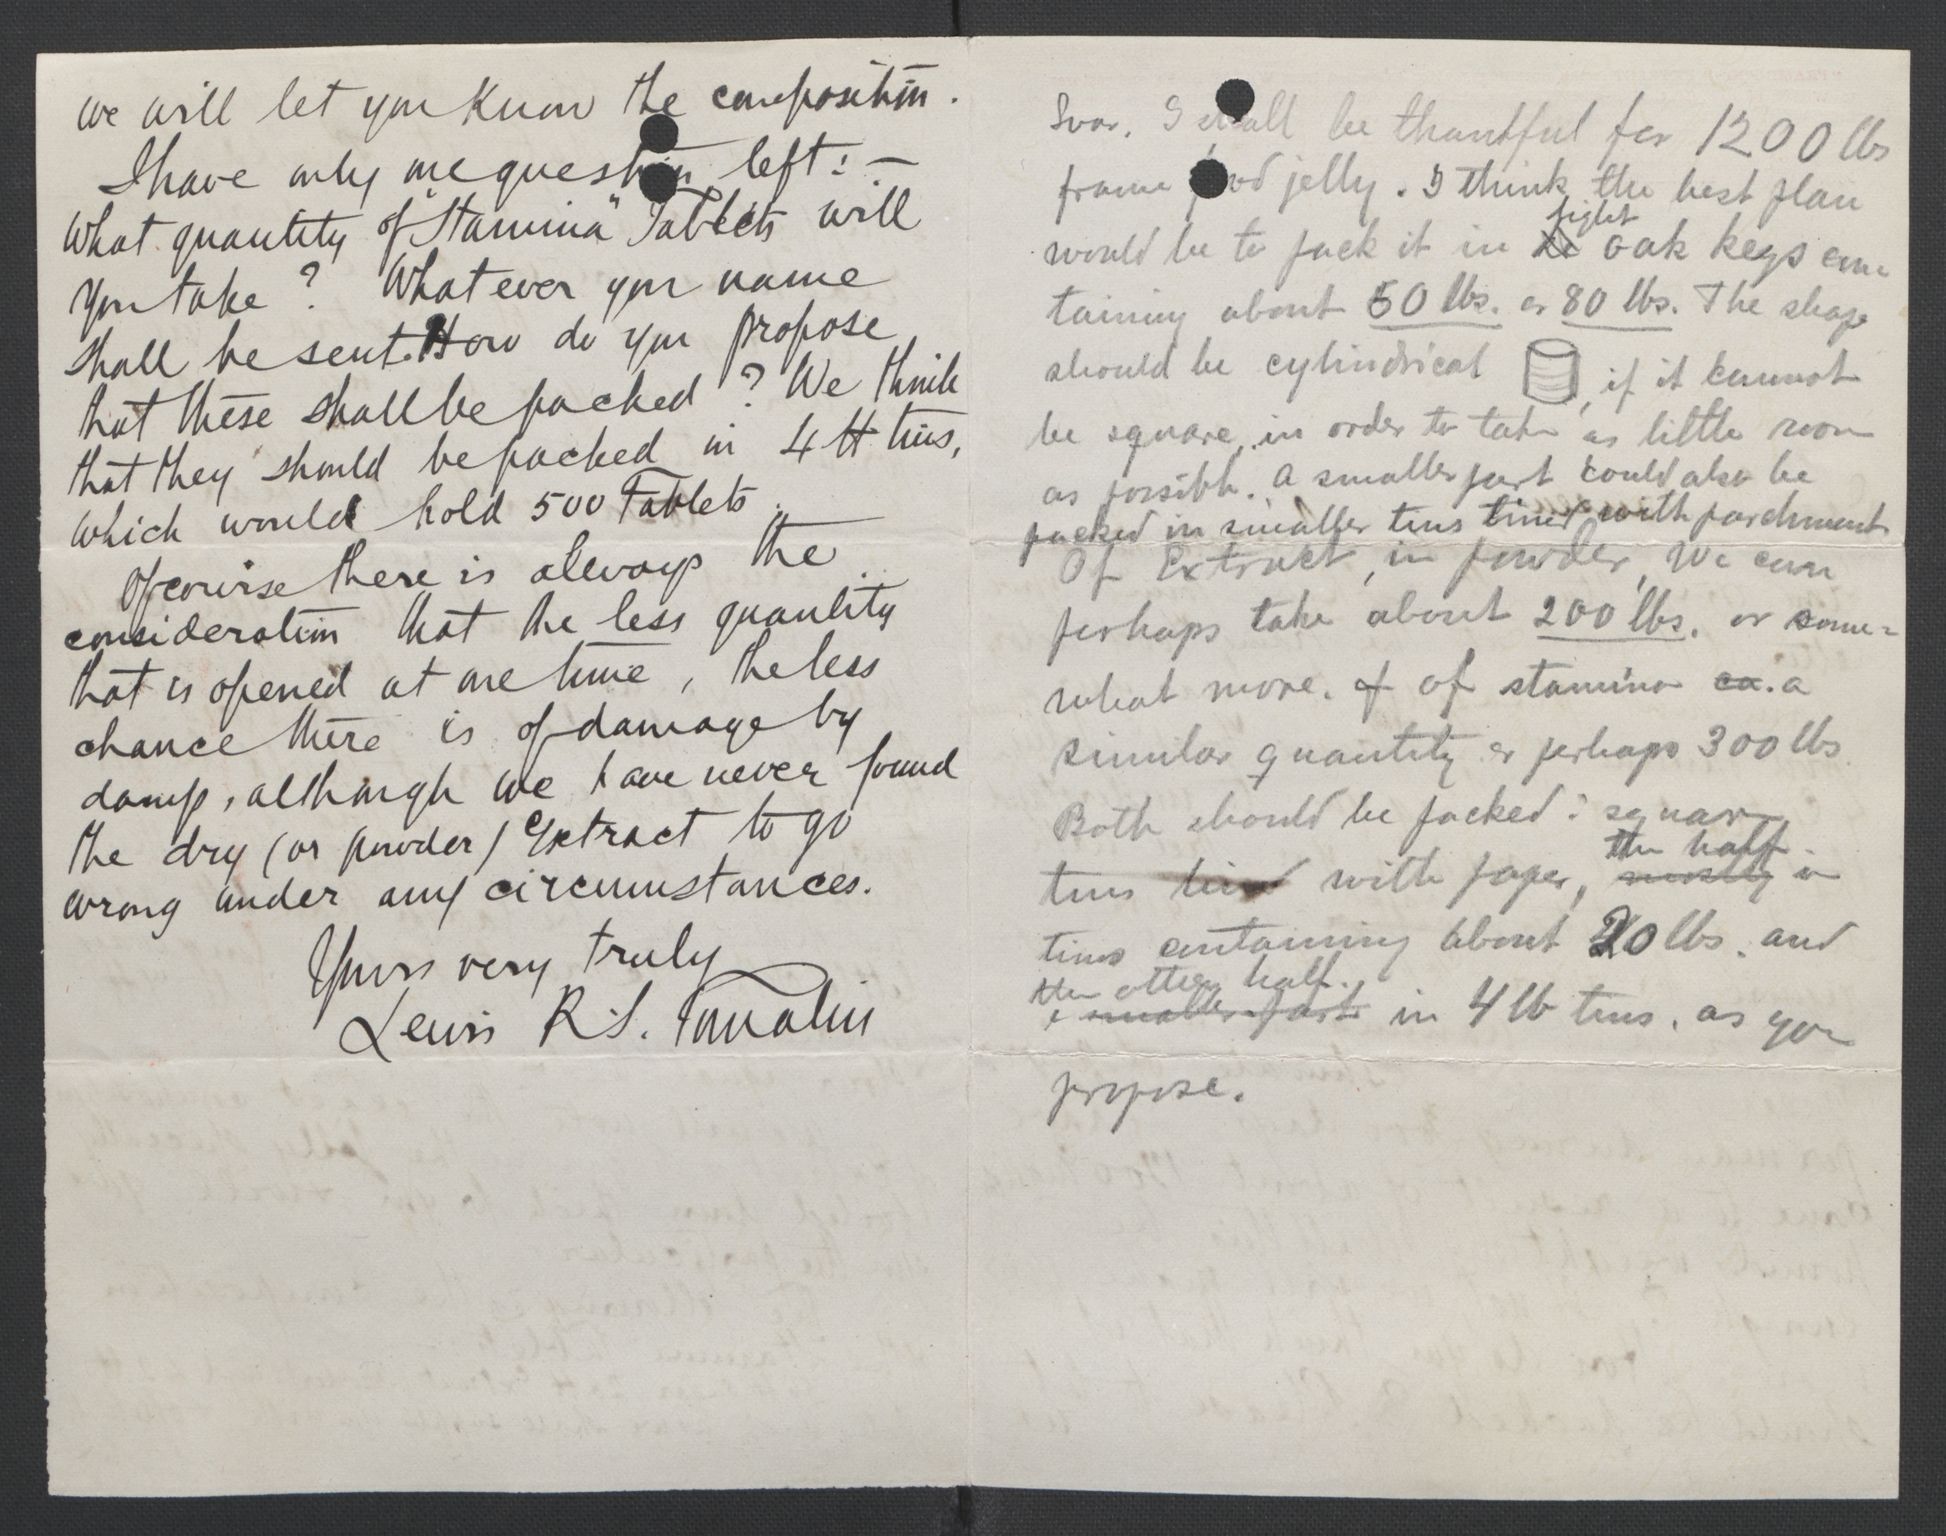 we will let you Know the composition.
I have only one question left: —
What quantity of "Stamina" Tablets will
you take? Whatever you name
shall be sent. How do you propose
that these shall be packed? We think
that they should be packed in 4 lb tins,
which would hold 500 Tablets.
Of course there is always the
consideration that the less quantity
that is opened at one time, the less
chance there is of damage by
damp, although we have never found
the dry (or powder) Extract to go
wrong under any circumstances.
Yours very truly
Lewis R. S. Tomalin
Svar. I shall be thankful for 1200 lbs
frame food jelly. I think the best plan
tight
would be to pack it in oak kegs con-
taining about 60 lbs. or 80 lbs. The shape
should be cylindrical , if it cannot
be square, in order to take as little room
as possible. A smaller part could also be
packed in smaller tins lined with parchment
Of Extract, in powder, We can
perhaps take about 200 lbs. or some=
what more. of of stamina ca. a
similar quantity or perhaps 300 lbs
Both should be packed: square
the half
tins lined with paper, mostly in
tins containing about 20 lbs. and
the other half.
smaller part in 4 lb tins, as you
propose.